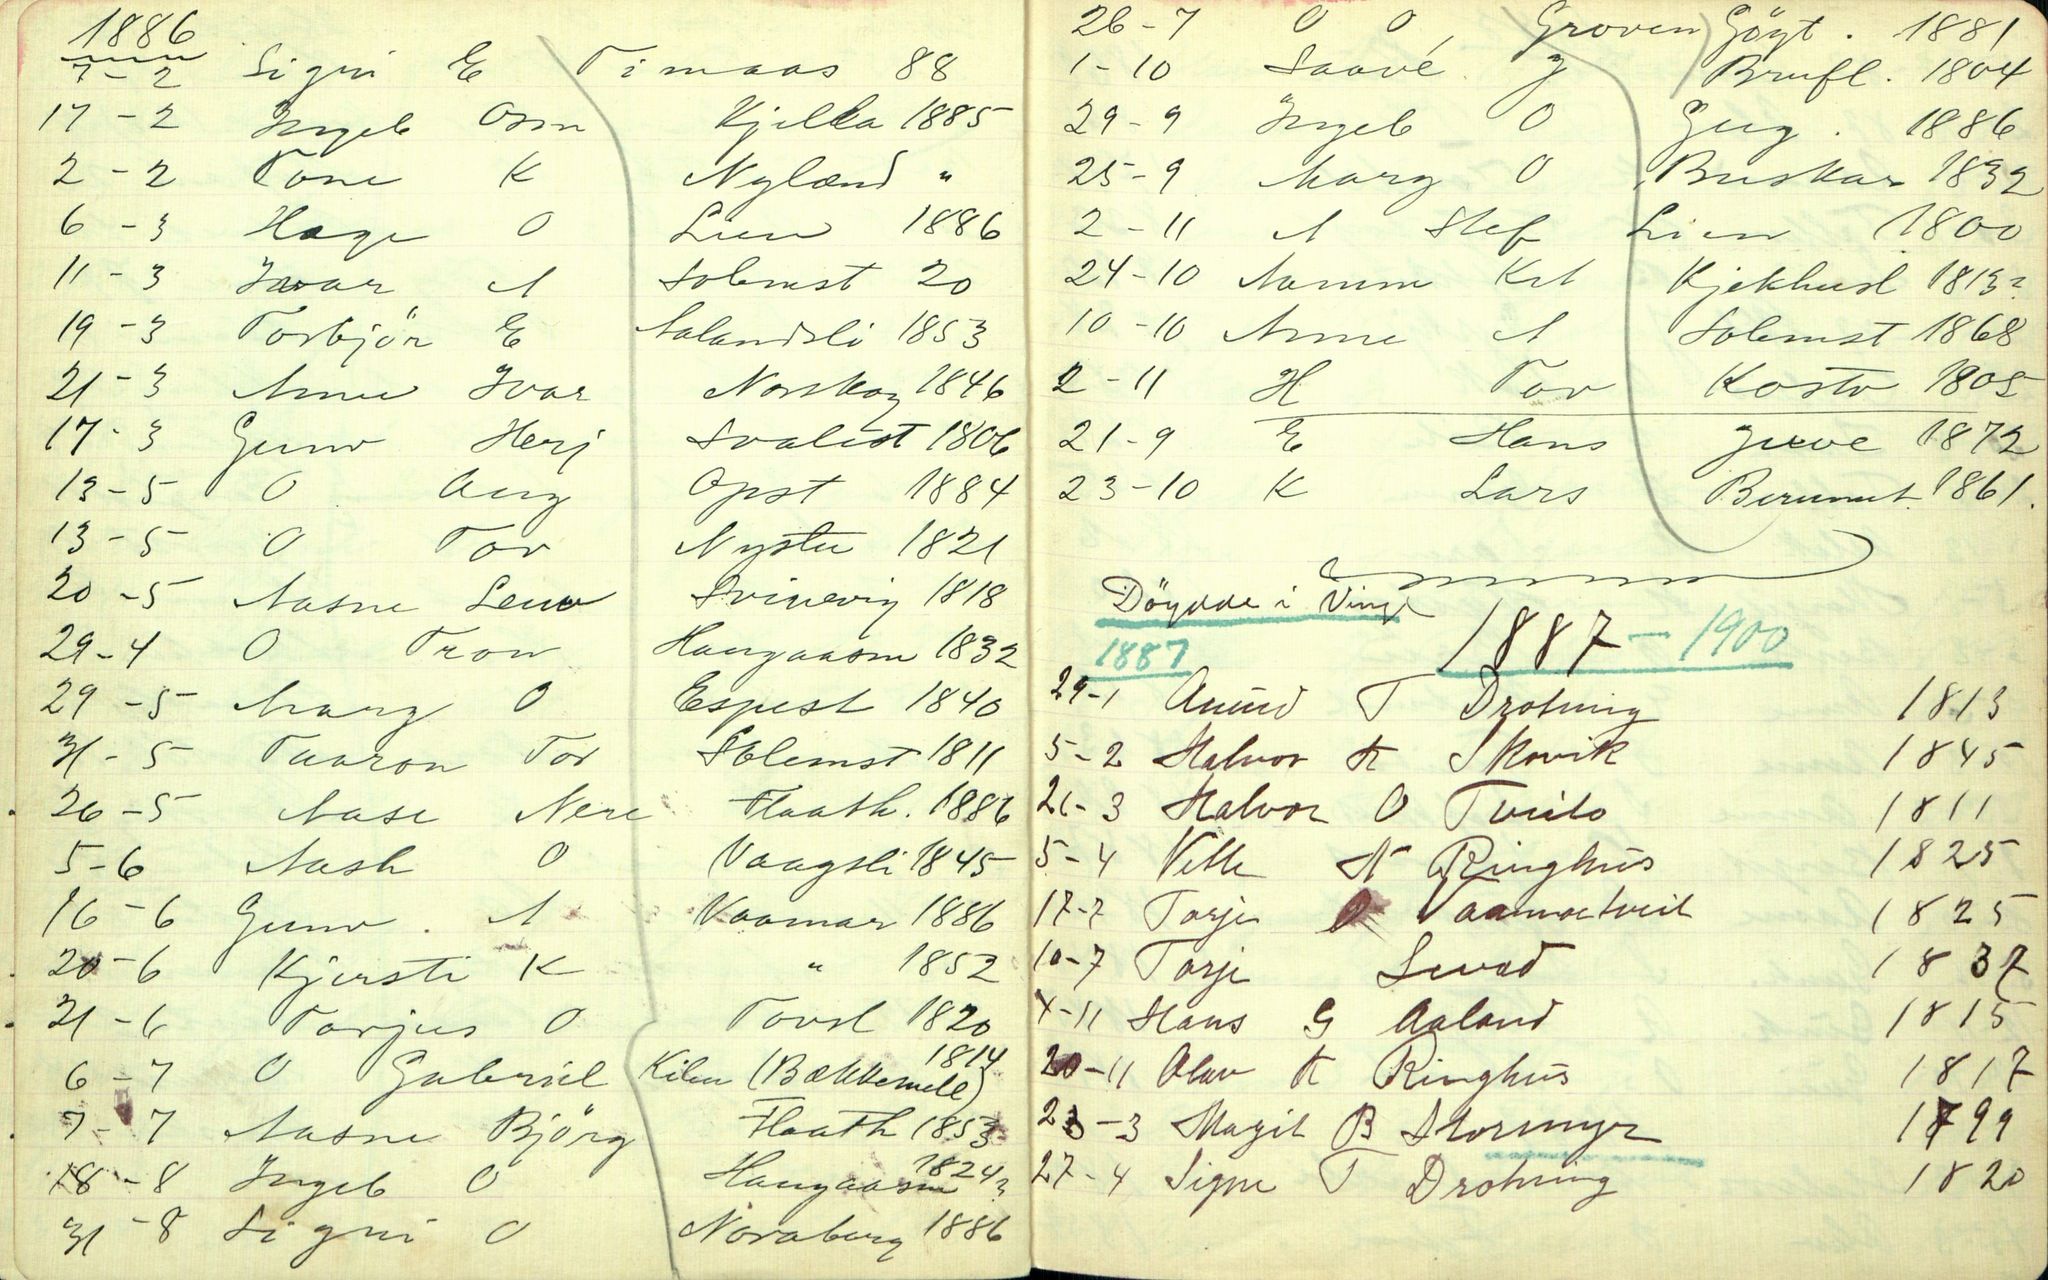 1886
7-2 Signi E Timaas 88
17-2 Ingeb Osm Kjella 1885
2-2 Tone K Nylænd "
6-3 Hage O Lien 1886
11-3 Ivar A Solemst 20
19-3 Torbjör E Aalandsli 1853
21-3 Anne Ivar Norskog 1846
17-3 Gunv Herj Svalest 1806
13-5 O Aug Opst 1884
13-5 O Tov Nystu 1821
20-5 Aasne Leiv Svinevig 1818
29-4 O Trov Haugaasm 1832
29-5 Marg O Espest 1840
31-5 Taaron Tor Solemst 1811
26-5 Aase Nere Flaath. 1886
5-6 Aash O Vaagsli 1845
16-6 Gunv. A Vaamar 1886
20-6 Kjersti K " 1852
21-6 Tarjus O Tovsl 1820
6-7 O Gabriel Kilen (Bækkemell) 1814
7-7 Aasne Björg Flaath 1853
18-8 Ingeb O Haugaasm 1824?
31-8 Signi O Noraberg 1886
26-7 O O, Groven Göyt. 1881
1-10 Saavé G Brufl. 1804
29-9 Ingeb O Gug. 1886
25-9 Marg O Buskar 1832
2-11 A Stef Lien 1800
24-10 Aamm Krl Kjekhusl 1813?
10-10 Anne A Solemst 1868
2-11 H Tov Kostv 1805
21-9 E Hans Juve 1872
23-10 K Lars Berunut. 1861.
Döydde i Vinje 1887-1900
1887
29-1 Amund T Drotning 1813
5-2 Halvor K Skovik 1845
21-3 Halvor O Tveito 1811
5-4 Vetle A Ringhus 1825
17-7 Tarje O Vaamartveit 1825
10-7 Tarje Levad 1837
X-11 Hans G Aaland 1815
20-11 Olav K Ringhus 1817
23-3 Magit B Stormyr 1799
27-4 Signe T Drotning 1820